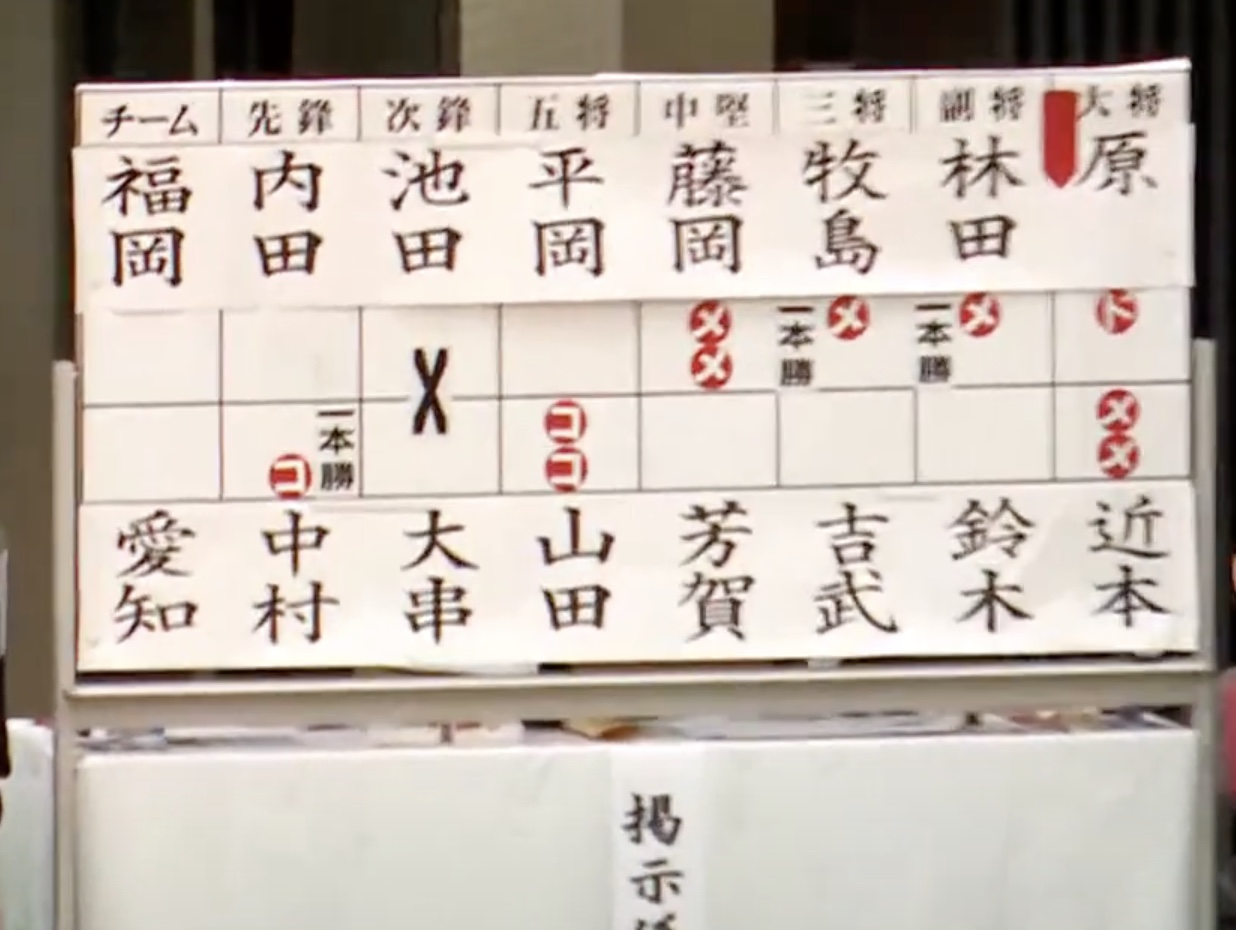 チーム 先鋒 次鋒 五将 中堅 三将 副将 大将
福岡 内田 池田 平岡 藤岡 牧島 林田 原
メメ 一本勝 メ 一本勝 メ ド
コ 一本勝 ココ メメ
愛知 中村 大串 山田 芳賀 吉武 鈴木 近本
掲示